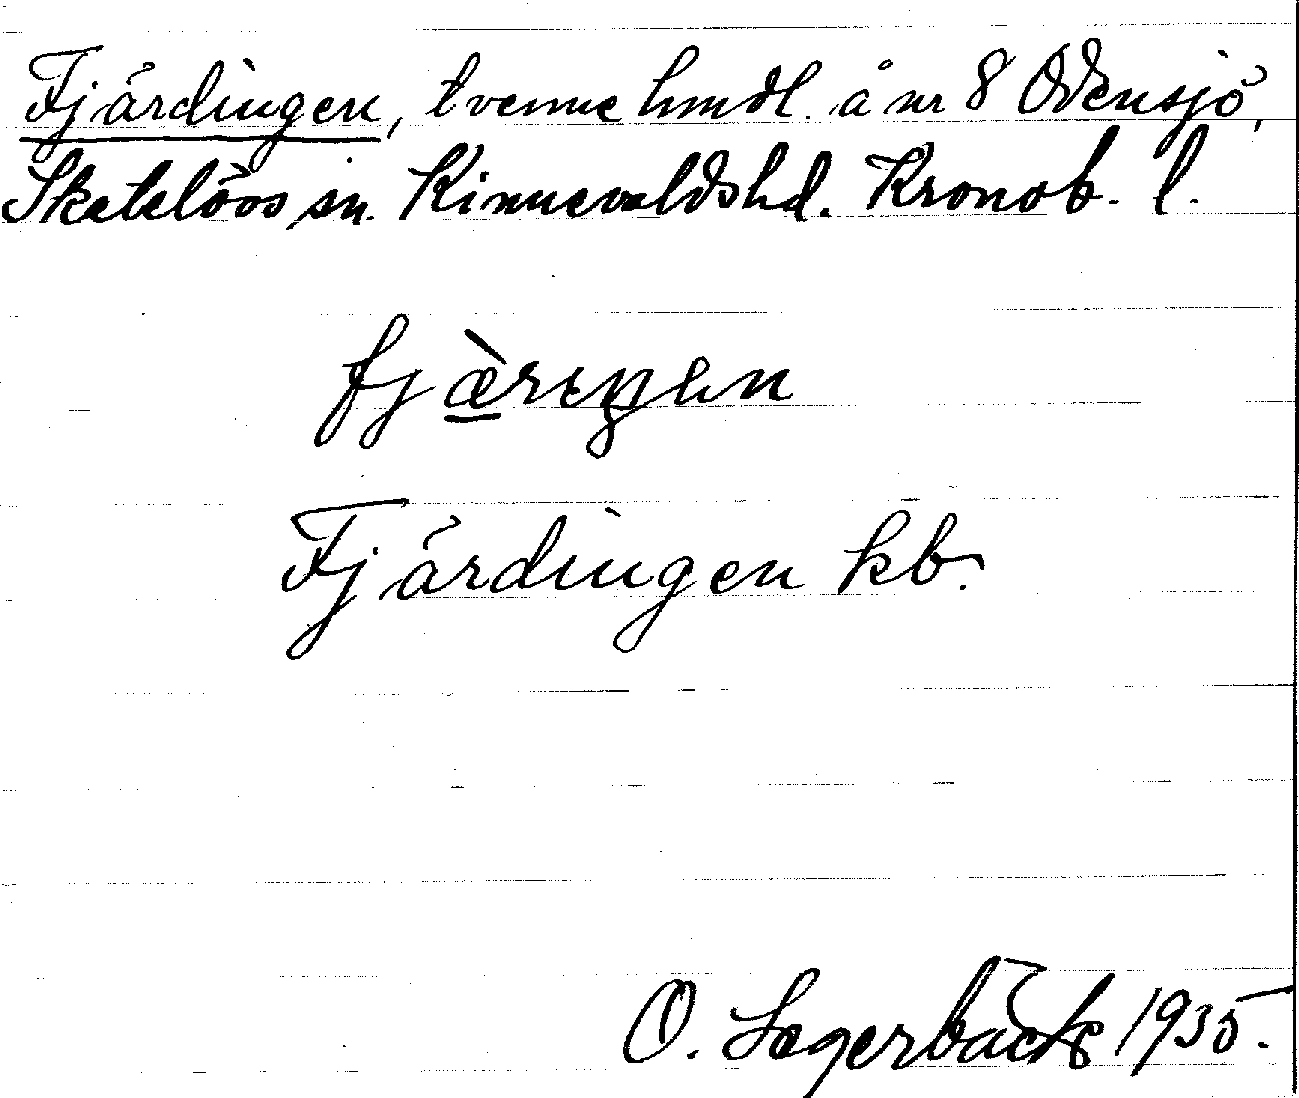 Fjärdingen, tvenne hmdl. å nr 8 Odensjö,
Skatelövs sn. Kinnevaldshd. Kronob. l.
fjæ̀rıŋen
Fjärdingen kb.
O. Lagerbäck 1935.